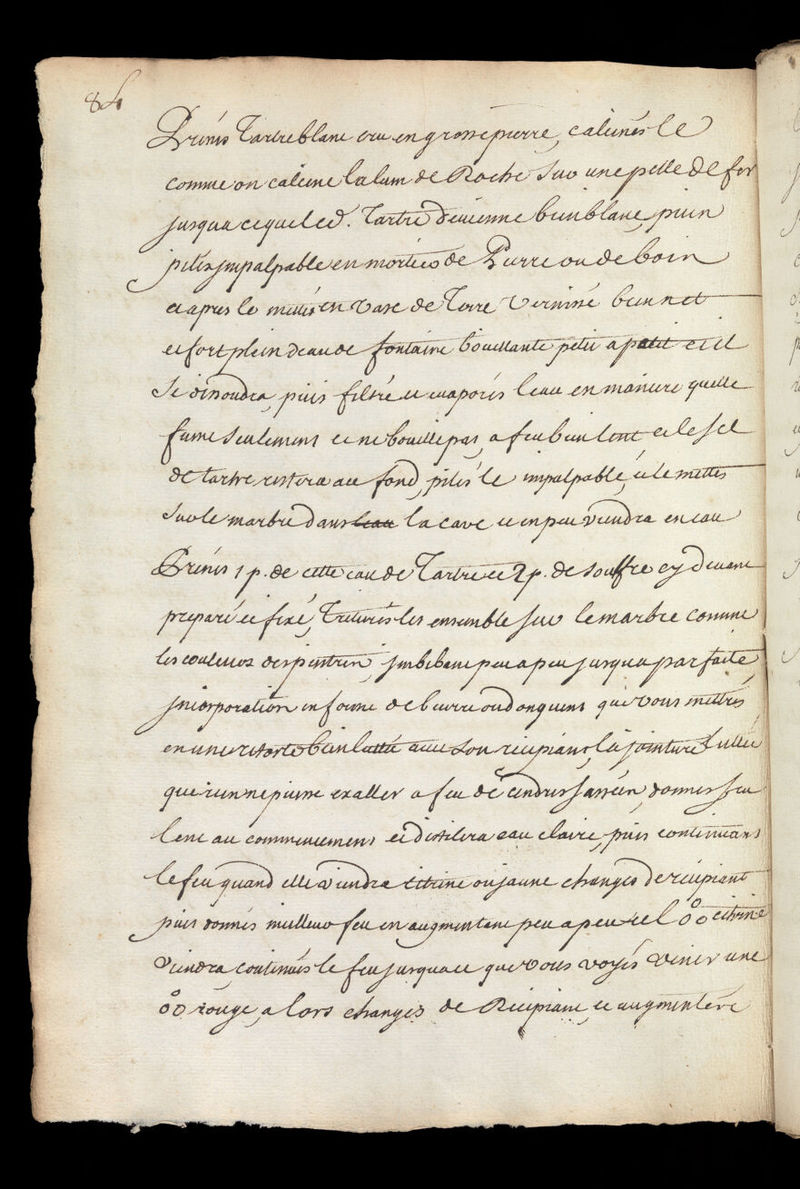 84
Prenés Tartre blanc cru en grosse pierre, calcinés le
comme on calcine lalum de Roche Sur une pelle de fer
jusqua ce que led. Tartre devienne bien blanc, puin
pilés jmpalpable en mortiers de Pierre ou de boin
et apres le mettés en vase de Terre Vernissé bien net
et fort plein deau de fontaine bouillante petit a petit et il
Se dissoudra, puis filtré et evaporés leau en maniere quelle
fume Seulement et ne bouille pas, a feu bien lent et le sel
de tartre restera au fond, pilés le impalpable, et le mettes
Sur le marbre dans leau la cave et en peu viendra en eau
Prenés 1 p. de cette eau de Tartre et 2 p. de Souffre cy devant
preparé et fixé, Triturés les ensemble sur le marbre comme
les couleurs des peintren, jmbibant peu a peu jusqua parfaite
jncorporation en forme de beurre ou donguent que vous mettrés
en une retorte bien luttée avec Son recipiant, la jointure Luttée
que rien ne puisse exaller a feu de cendres, donnes feu
lent au commencement et distilera eau claire, puis continuant
le feu quand elle viendra citrine ou jaune changes de recipiant
puis donnés meilleur feu en augmentant peu a peu et l o°o citrine
viendra, continués le feu jusqua ce que vous voyés venir une
o°o rouge, a lors changes de Recipiant et augmentere